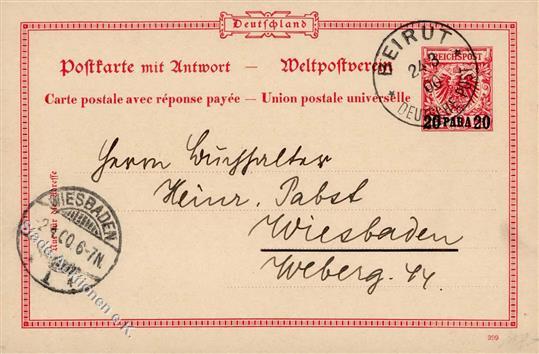 Deutschland
Postkarte mit Antwort — Weltpostverein
Carte postale avec réponse payée — Union postale universelle
BEIRUT
24 3
00
DEUTSCHE POST
REICHSPOST
20 PARA 20
Herrn Buchhalter
Heinr. Pabst
Wiesbaden
Weberg. 44.
WIESBADEN
00. 6-7N.
1
399